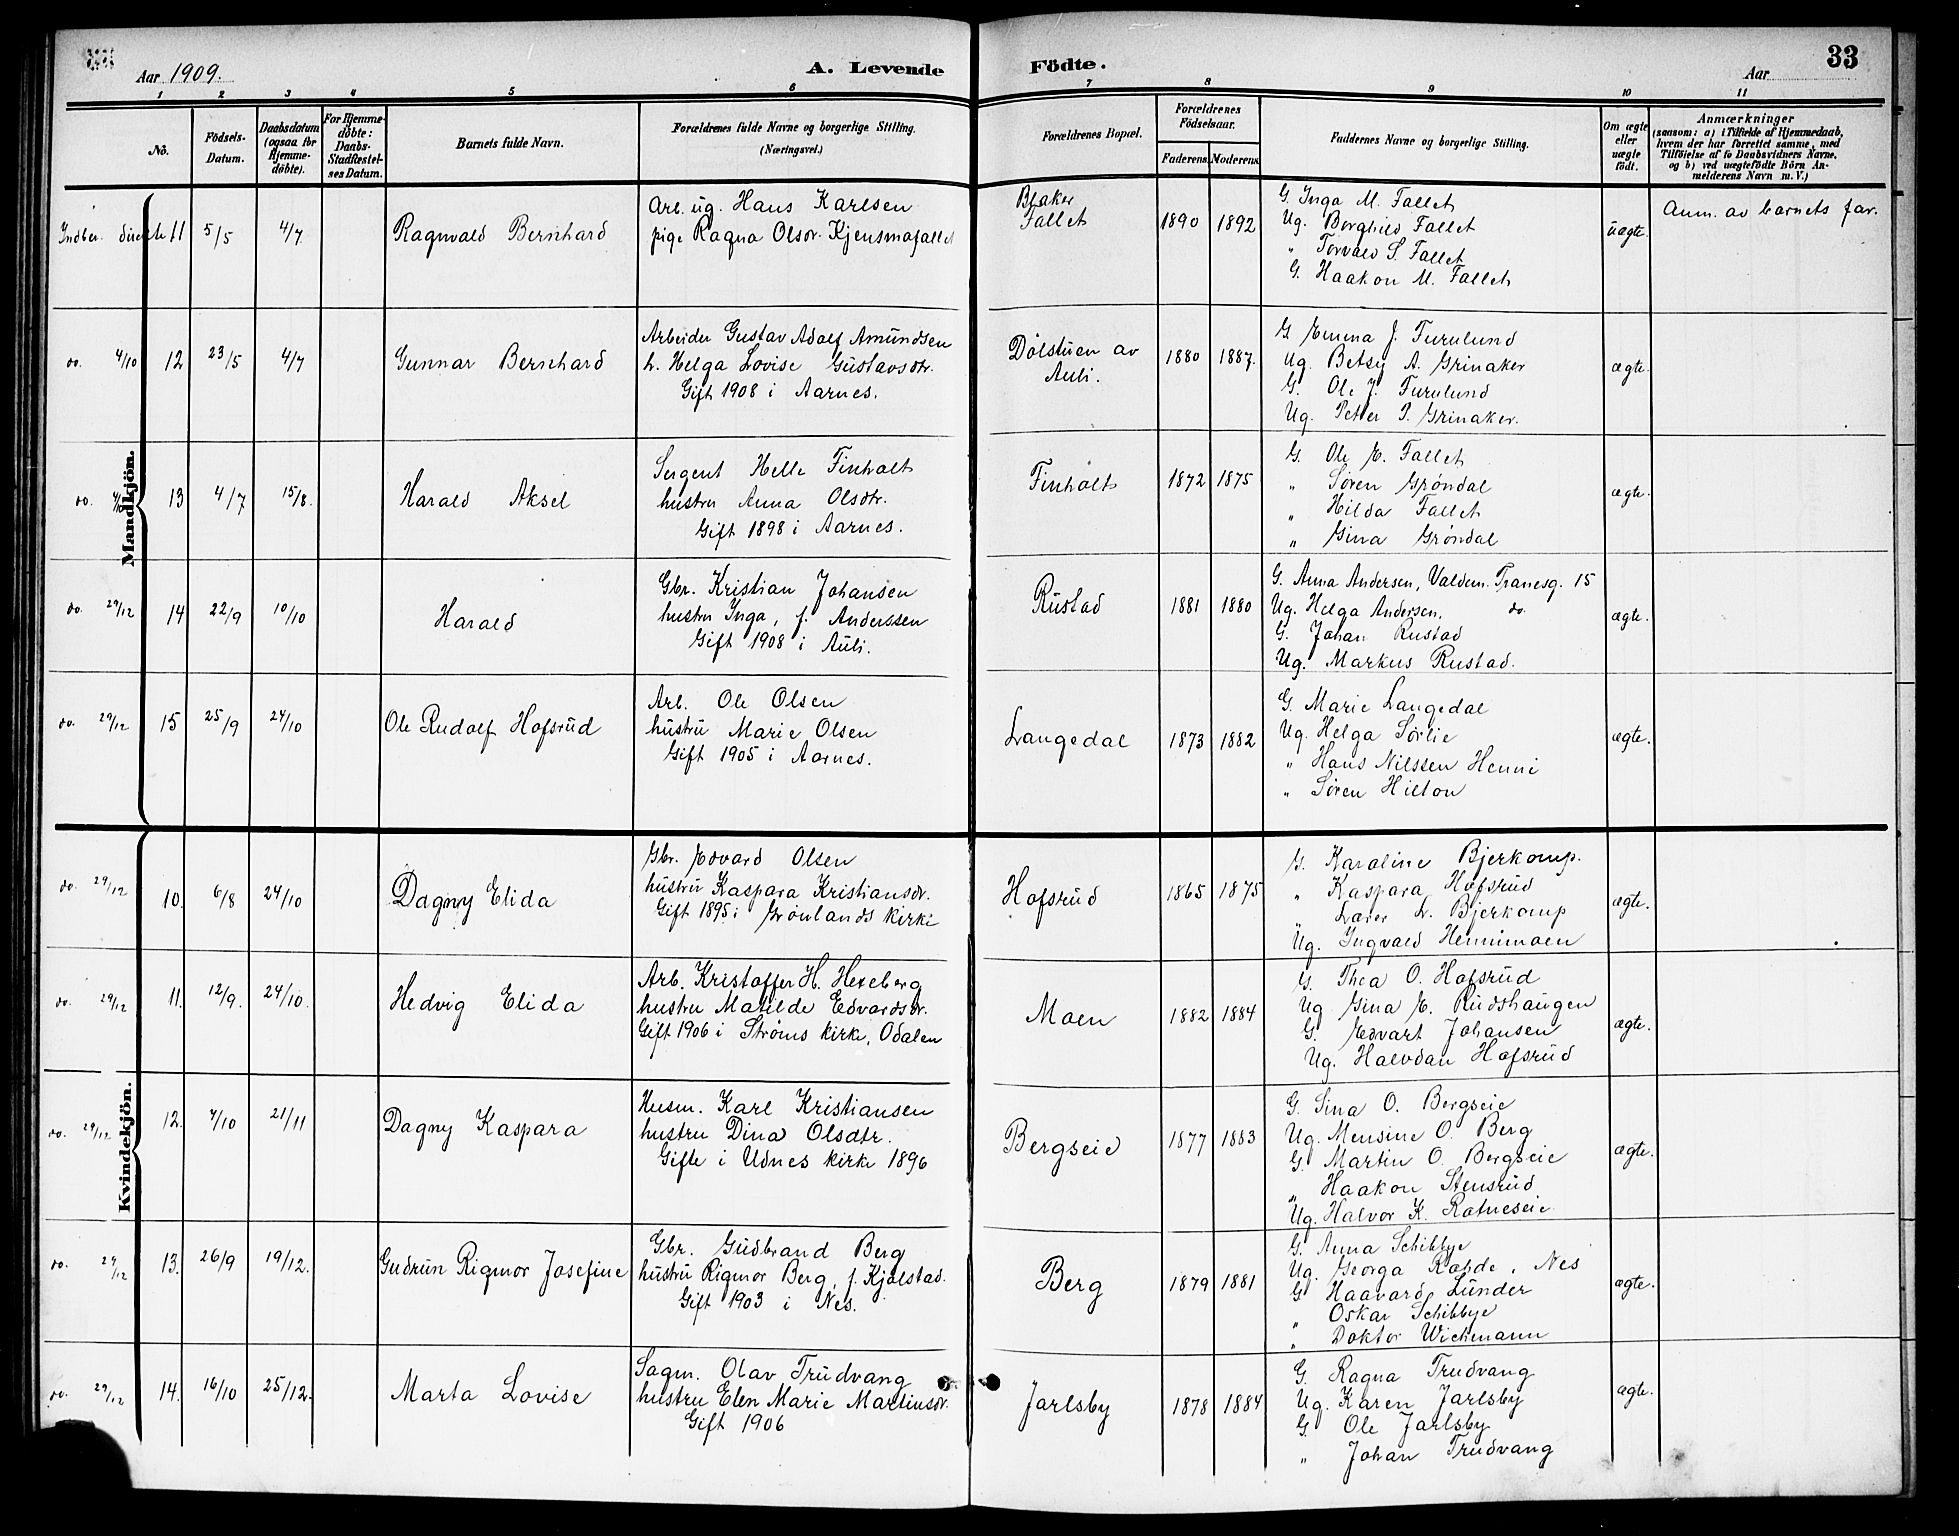 33
Aar 1909.
A. Levende Fødte.
Aar
1 2 3 4 5 6 7 8 9 10 11
No.
Fødsels-Datum.
Daabsdatum (ogsaa for Hjemme-døbte).
For Hjemme-døbte: Daabs-Stadfæstel-ses Datum.
Barnets fulde Navn.
Forældrenes fulde Navne og borgerlige Stilling.
(Næringsvei.)
Forældrenes Bopæl.
Forældrenes Fødselsaar.
Faderens. Moderens.
Faddernes Navne og borgerlige Stilling.
Om ægte eller uægte født.
Anmærkninger
(saasom: a) i Tilfælde af Hjemmedaab,
hvem der har forrettet samme, med
Tilføielse af to Daabsvidners Navne,
og b) ved uægtefødte Børn An-
melderens Navn m. V.)
Mandkjön.
Indber. direkte 11 5/5 4/7 Ragnvald Bernhard
Arb. ug. Hans Karlsen
pige Ragna Olsdr. Kjensmofallet
Blaker
Fallet
1890 1892
G. Inga M. Fallet
Ug. Borghild Fallet
" Torvald S. Fallet
G. Haakon M. Fallet
uægte.
Anm. av barnets far.
do. 4/10 12 23/5 4/7 Gunnar Bernhard
Arbeider Gustav Adolf Amundsen
h. Helga Lovise Gustavsdtr.
Gift 1908 i Aarnes.
Dølstuen av
Auli.
1880 1887.
G. Emma J. Furulund
Ug. Betsy A. Grinaker
G. Ole J. Furulund
Ug. Petter P. Grinaker.
ægte.
do. 13 4/7 15/8. Harald Aksel
Sergent Helle Finholt
hustru Anna Olsdtr.
Gift 1898 i Aarnes.
Finholt
1872 1875
G. Ole E. Fallet
" Søren Grøndal
" Hilda Fallet
" Gina Grøndal
ægte.
do. 29/12 14 22/9 10/10 Harald
Gbr. Kristian Johansen
hustru Inga, f. Anderssen
Gift 1908 i Auli.
Rustad
1881 1880
G. Anna Andersen, Valdem. Tranesg. 15
Ug. Helga Andersen. do.
G. Johan Rustad
Ug. Markus Rustad.
ægte.
do. 29/12 15 25/9 24/10 Ole Rudolf Hofsrud
Arb. Ole Olsen
hustru Marie Olsen
Gift 1905 i Aarnes.
Langedal
1873 1882
G. Marie Langedal
Ug. Helga Sørlie
" Hans Nilssen Henni
" Søren Hilton
ægte.
Kvindekjön.
do. 29/12 10. 6/8 24/10 Dagny Elida
Gbr. Edvard Olsen
hustru Kaspara Kristiansdr.
Gift 1895 i Grønlands kirke
Hofsrud
1865 1875
G. Karoline Bjerkomp.
" Kaspara Hofsrud
" Larer L. Bjerkomp
Ug. Ingvald Hennimoen
ægte.
do. 29/12 11. 12/9. 24/10. Hedvig Elida
Arb. Kristoffer H. Hexeberg
hustru Matilde Edvardsdr.
Gift 1906 i Strøms kirke, Odalen
Moen
1882 1884
G. Thea O. Hofsrud
Ug. Gina E. Rudshaugen
G. Edvart Johansen
Ug. Halvdan Hofsrud
ægte.
do. 29/12 12. 7/10 21/11 Dagny Kaspara
Husm. Karl Kristiansen
hustru Dina Olsdtr.
Gifte i Udnes kirke 1896
Bergseie
1877 1883
G. Sina O. Bergseie
Ug. Mensine O. Berg
G. Martin O. Bergseie
" Haakon Stensrud
Ug. Halvor K. Rotneseie
ægte.
do. 29/12 13. 26/9 19/12. Gudrun Rigmor Josefine
Gbr. Gudbrand Berg
hustru Rigmor Berg, f. Kjølstad.
Gift 1903 i Nes.
Berg
1879 1881
G. Anna Schibbye
Ug. Georga Rohde, Nes
G. Haavard Lunder
" Oskar Schibbye
" Doktor Wichmann
ægte.
do. 29/12 14. 16/10 25/12. Marta Lovise
Sagm. Olav Trudvang
hustru Elen Marie Martinsdr.
Gift 1906
Jarlsby
1878 1884
G. Ragna Trudvang
Ug. Karen Jarlsby
G. Ole Jarlsby
" Johan Trudvang
ægte.